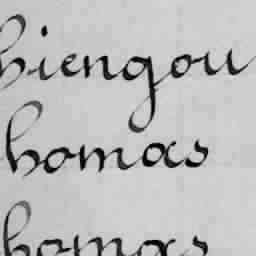 hiengou
homas
homas